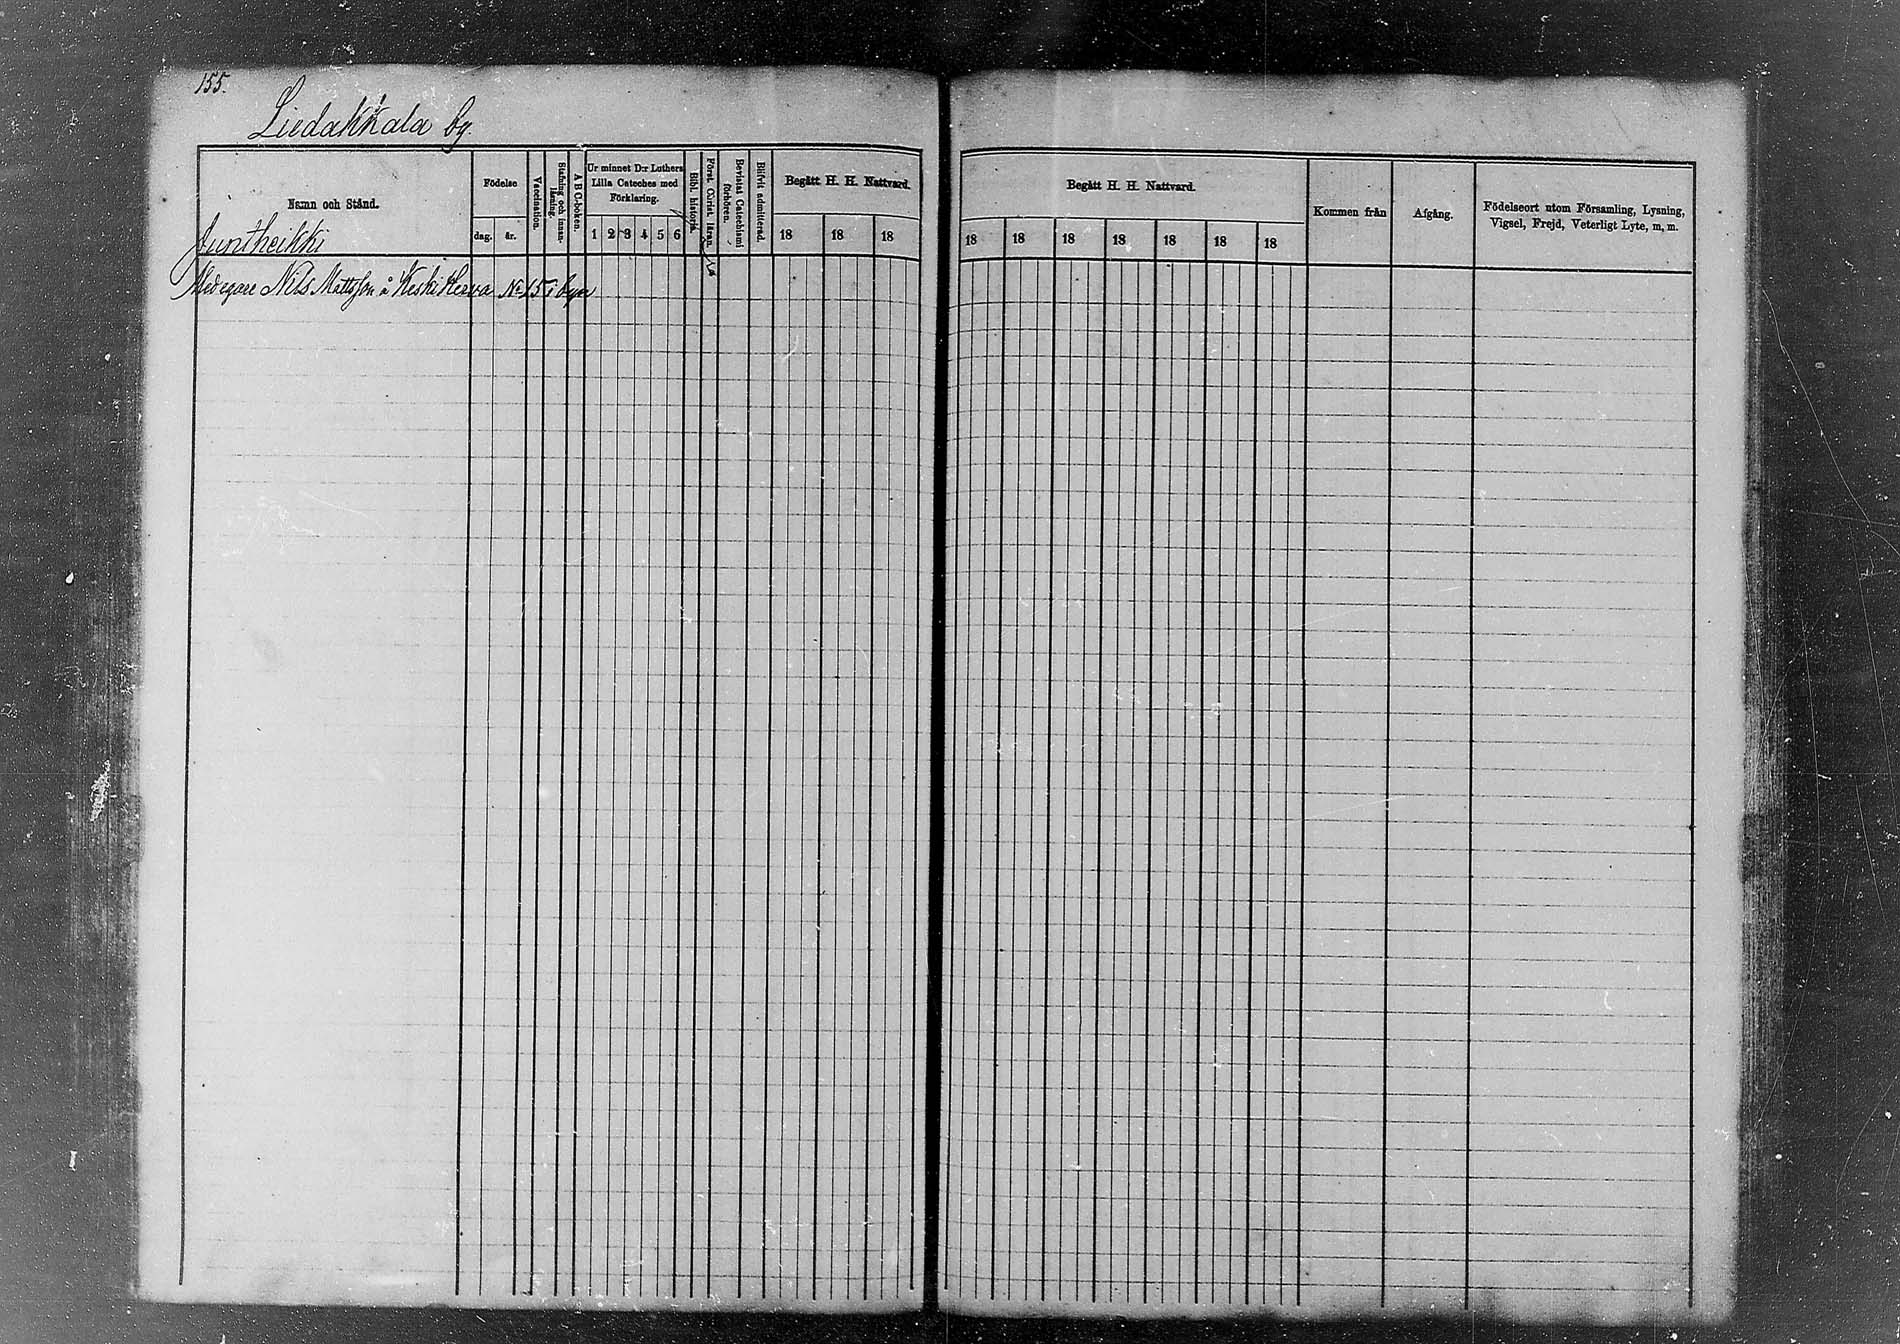 155.
Liedakkala by.
Namn och Stånd.
Födelse
dag.
år.
Vaccination.
Stafning och innan-läsning.
A B C-boken.
Ur minnet D:r Luthers
Lilla Cateches med
Förklaring.
1 2 3 4 5 6
Bibl. historia.
Först. Christ. läran.
Bevistat Catechismi förhören.
Blifvit admitterad.
Begått H. H. Nattvard.
18 18 18
Begått H. H. Nattvard.
18 18 18 18 18 18 18
Kommen från
Afgång.
Födelseort utom Församling, Lysning,
Vigsel, Frejd, Veterligt Lyte, m, m.
Juntheikki
Medegare Nils Mattsson å Keski Herva No 15 i byn